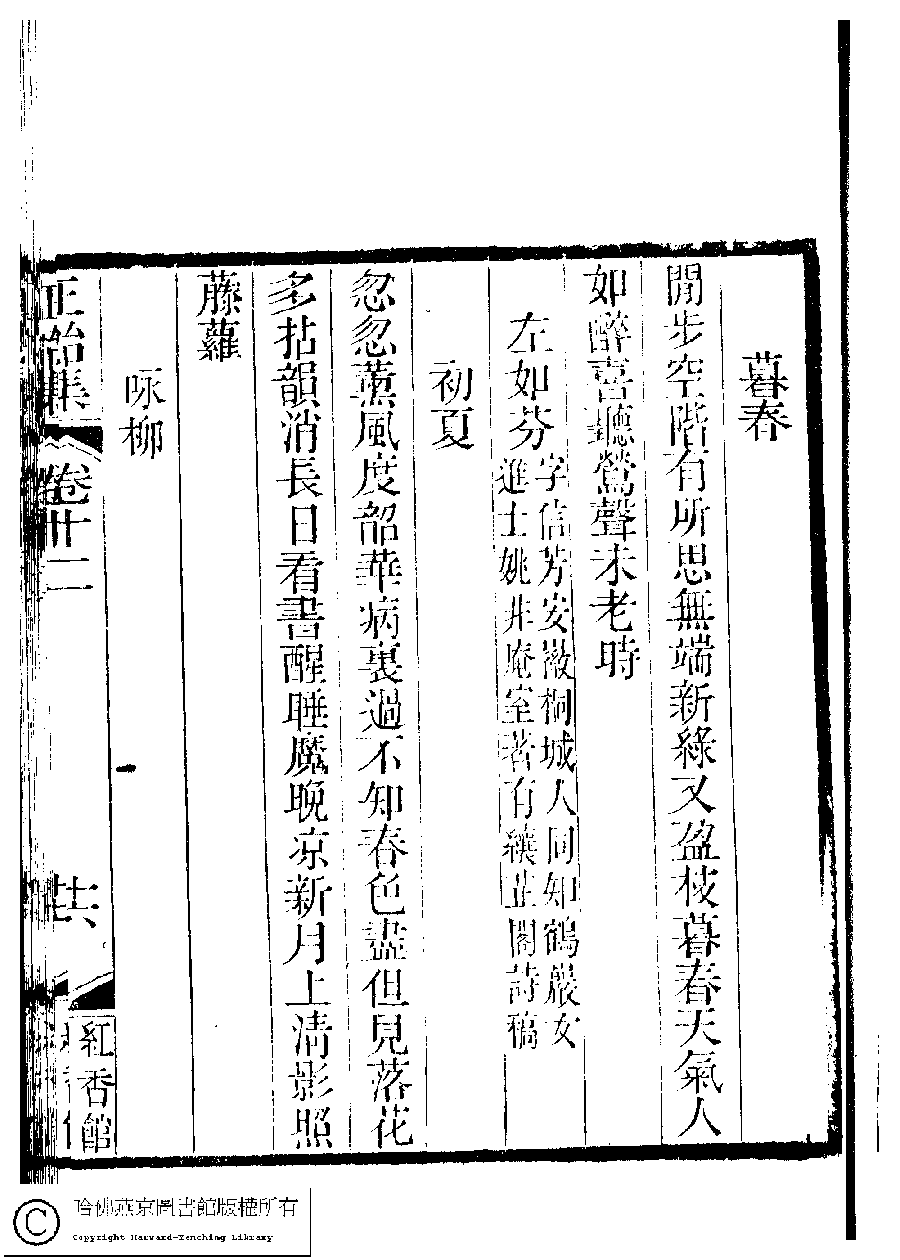 暮春
閒步空階有所思無端新綠又盈枝暮春天氣人
如醉喜聽鶯聲未老時
左如芬
字信芳安徽桐城人同知鶴巖女
進士姚井庵室著有纕芷閣詩稿
初夏
忽忽薰風度韶華病裏過不知春色盡但見落花
多拈韻消長日看書醒睡魔晚凉新月上清影照
藤蘿
咏柳
正始集
卷十二
共
紅香館
哈佛燕京圖書館版權所有
Copyright Harvard-Yenching Library